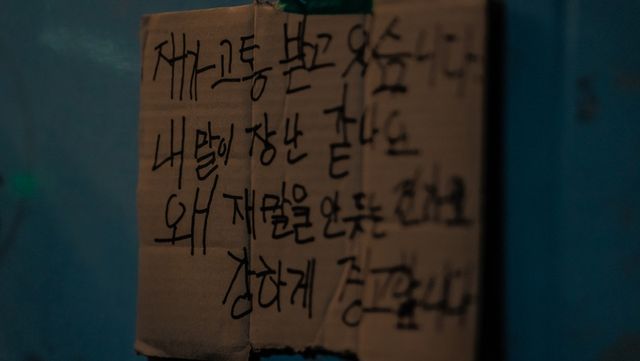 재가 고통 받고 있습니다
내 말이 장난 같나요
왜 재 말을 안 듣는
강하게 경고합니다